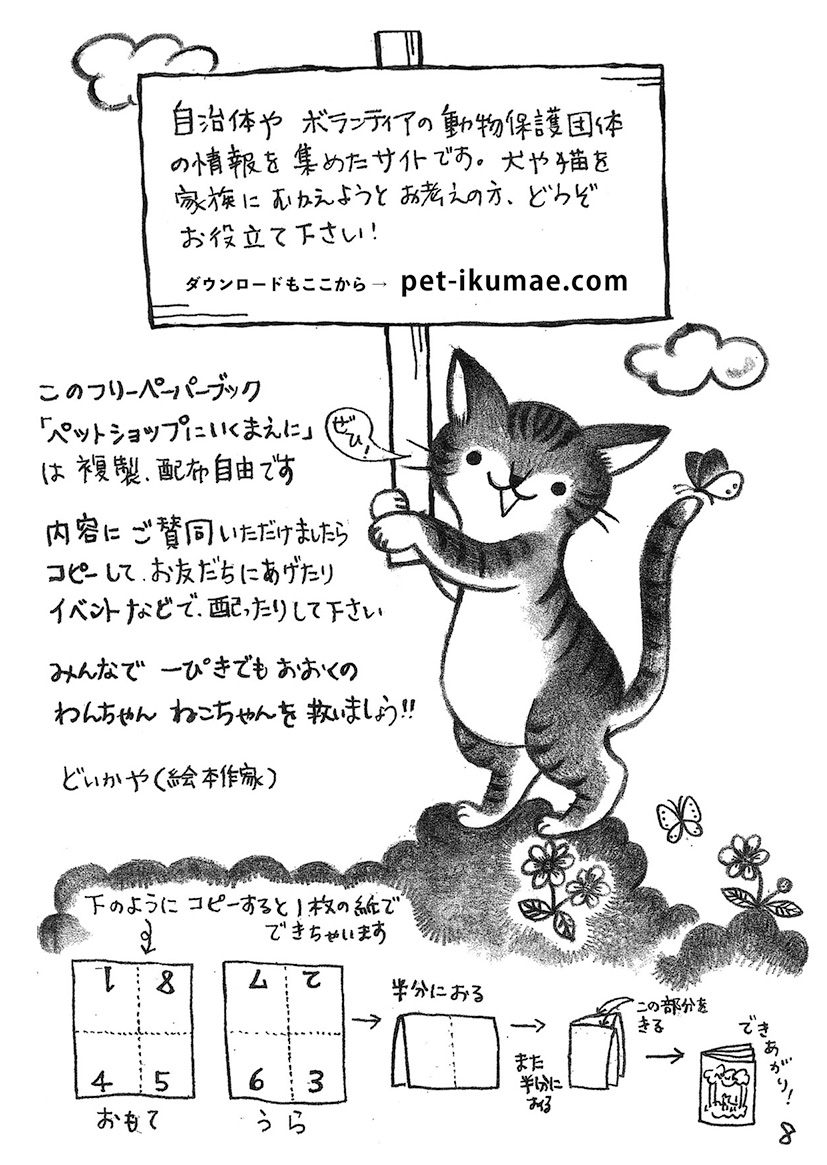 自治体や ボランティアの 動物保護団体
の情報を 集めたサイトです。犬や猫を
家族に むかえようと お考えの方、どうぞ
お役立て下さい!
ダウンロードもここから→ pet-ikumae.com
このフリーペーパーブック
「ペットショップにいくまえに」
は 複製、配布自由です
ぜひ!
内容に ご賛同いただけましたら
コピーして、お友だちにあげたり
イベントなどで、配ったりして下さい
みんなで 一ぴきでも おおくの
わんちゃん ねこちゃんを 救いましょう!!
どいかや(絵本作家)
下のように コピーすると 1枚の紙で
できちゃいます
1 8
4 5
おもて
7 2
6 3
うら
半分におる
また
半分に
おる
この部分を
きる
できあがり!
8